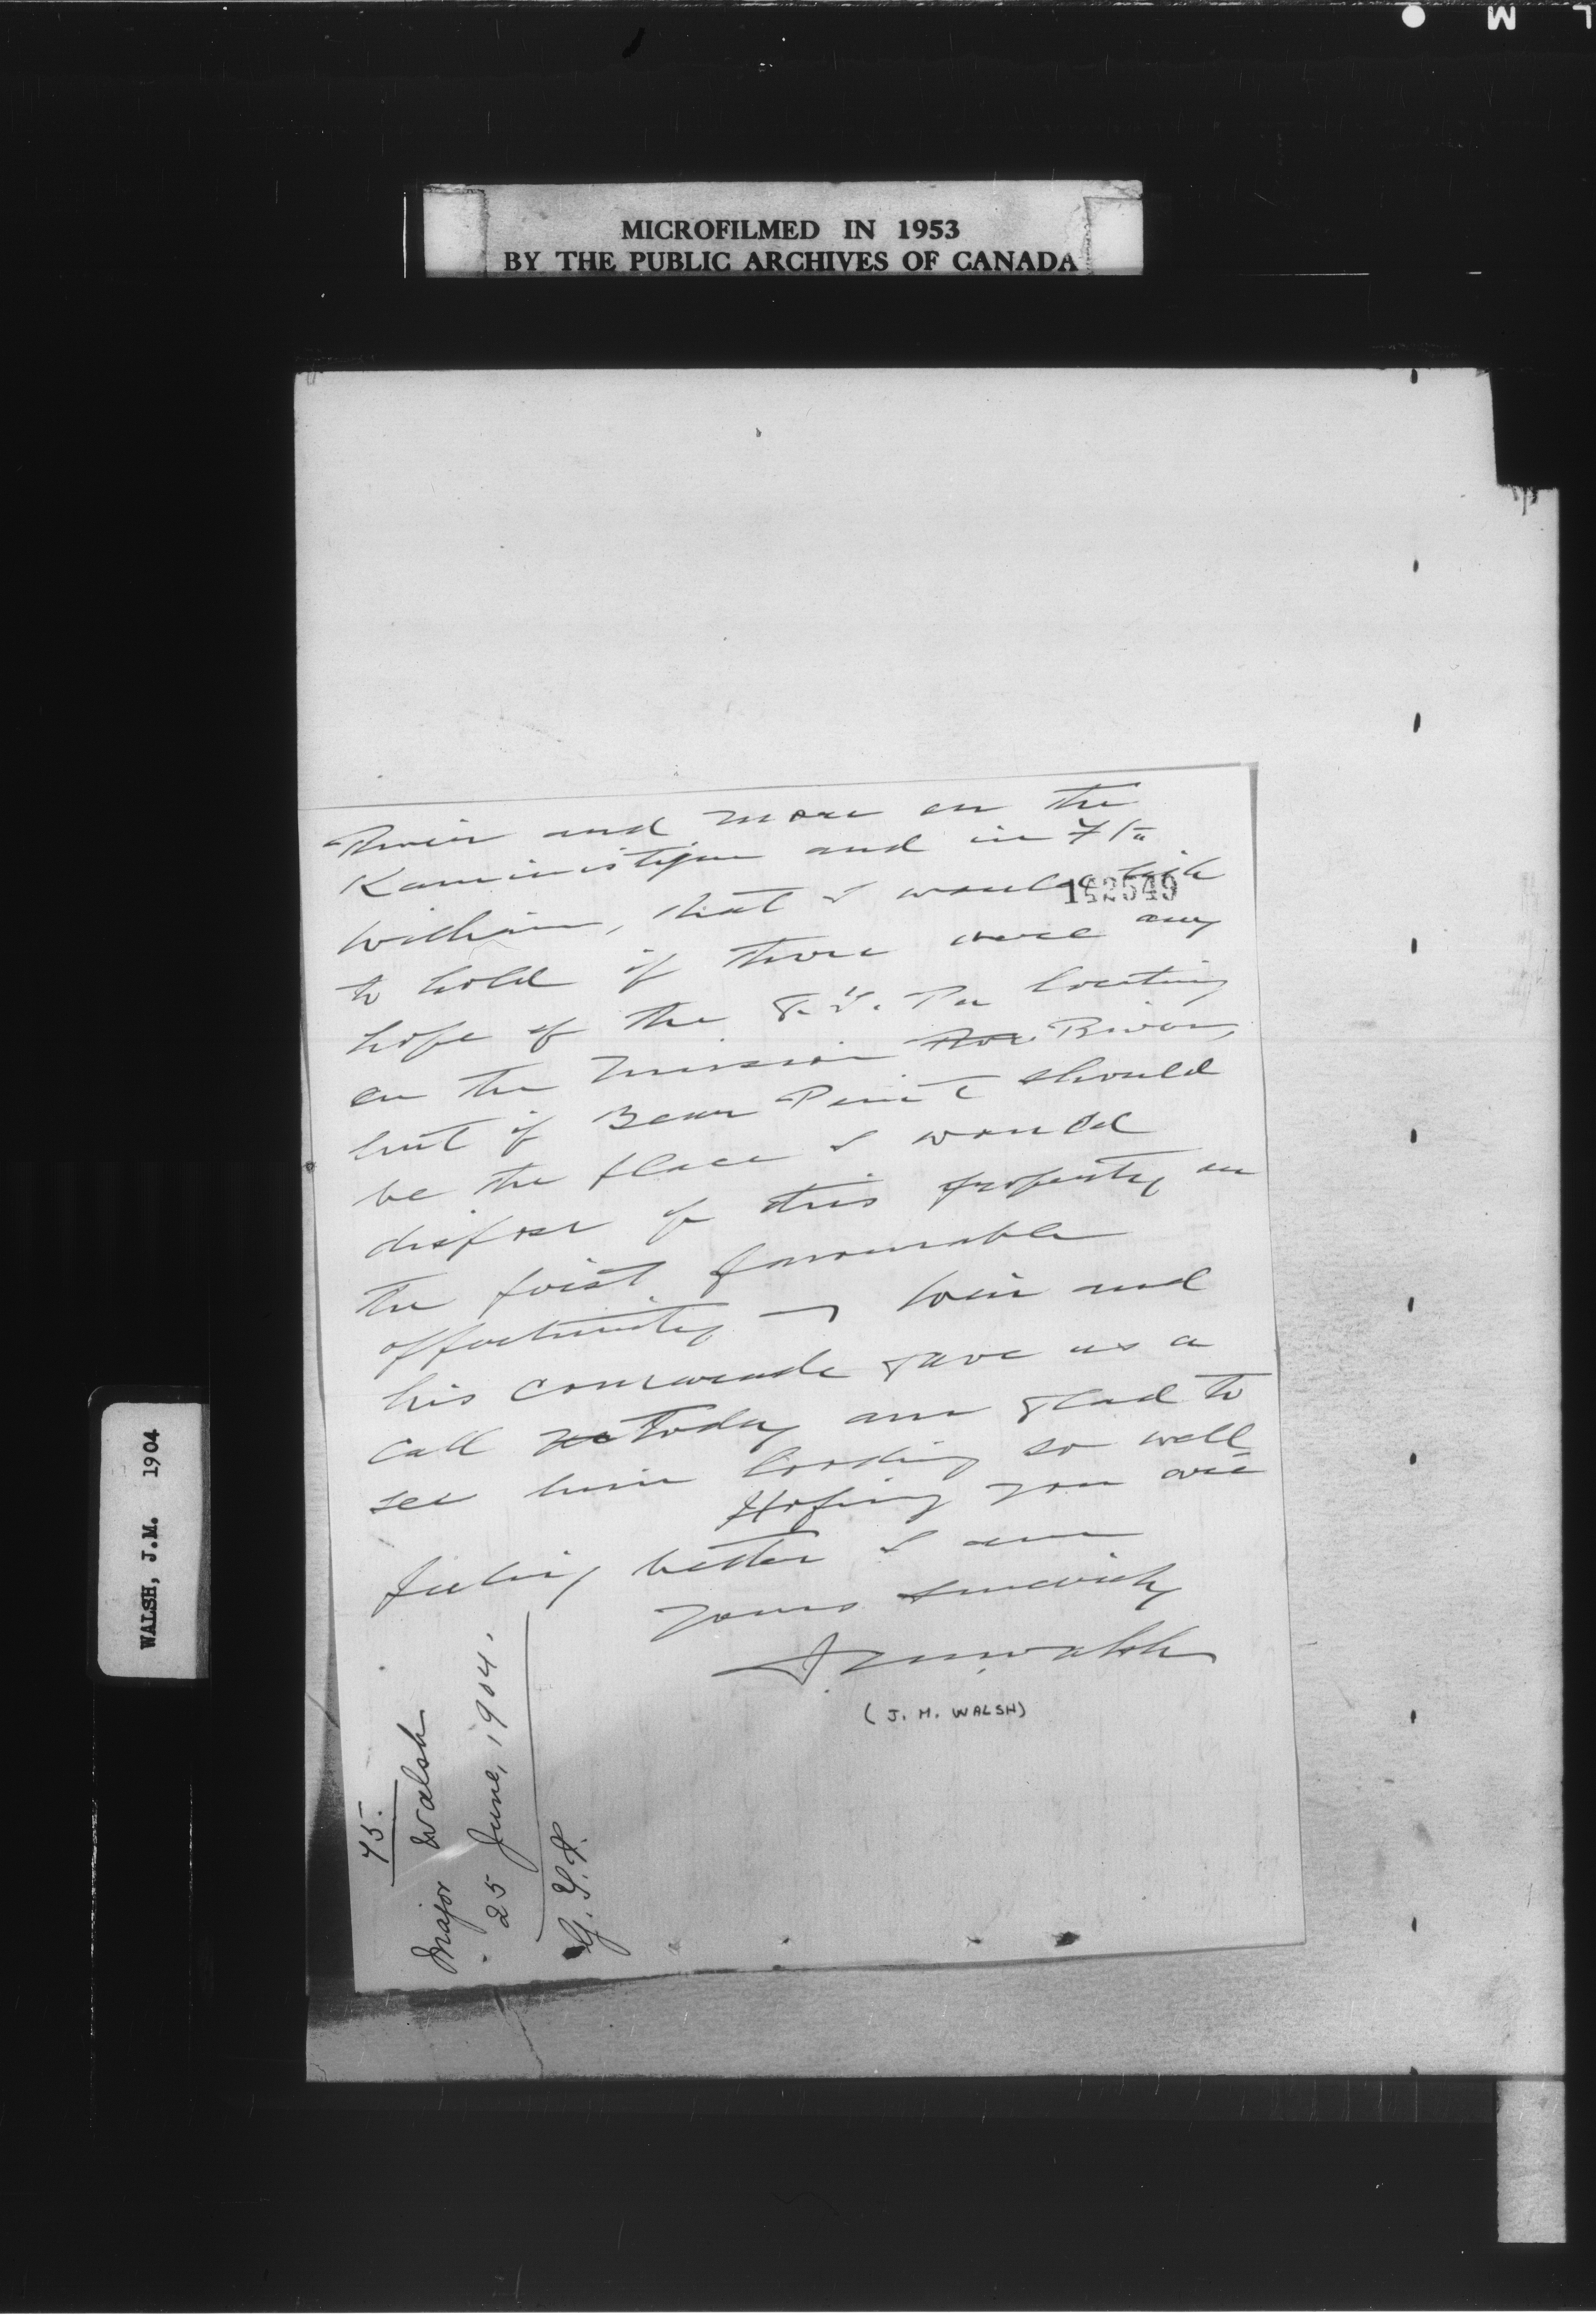 L M
MICROFILMED IN 1953
BY THE PUBLIC ARCHIVES OF CANADA
WALSH, J.M. 1904
142549
River and more on the
Kaministiqua and in Ft
William, that I would like
to hold if there were any
hope of the G.T. Pa locating
on the Mission Riv. River,
but if Bear Point should
be the place I would
dispose of this property on
the first favourable
opportunity — and
his comrade gave us a
call today am glad to
see him looking so well
Hoping you are
feeling better I am
yours sincerely
J M Walsh
(J. M. WALSH)
75.
Major Walsh
25 June, 1904.
G.T.P.